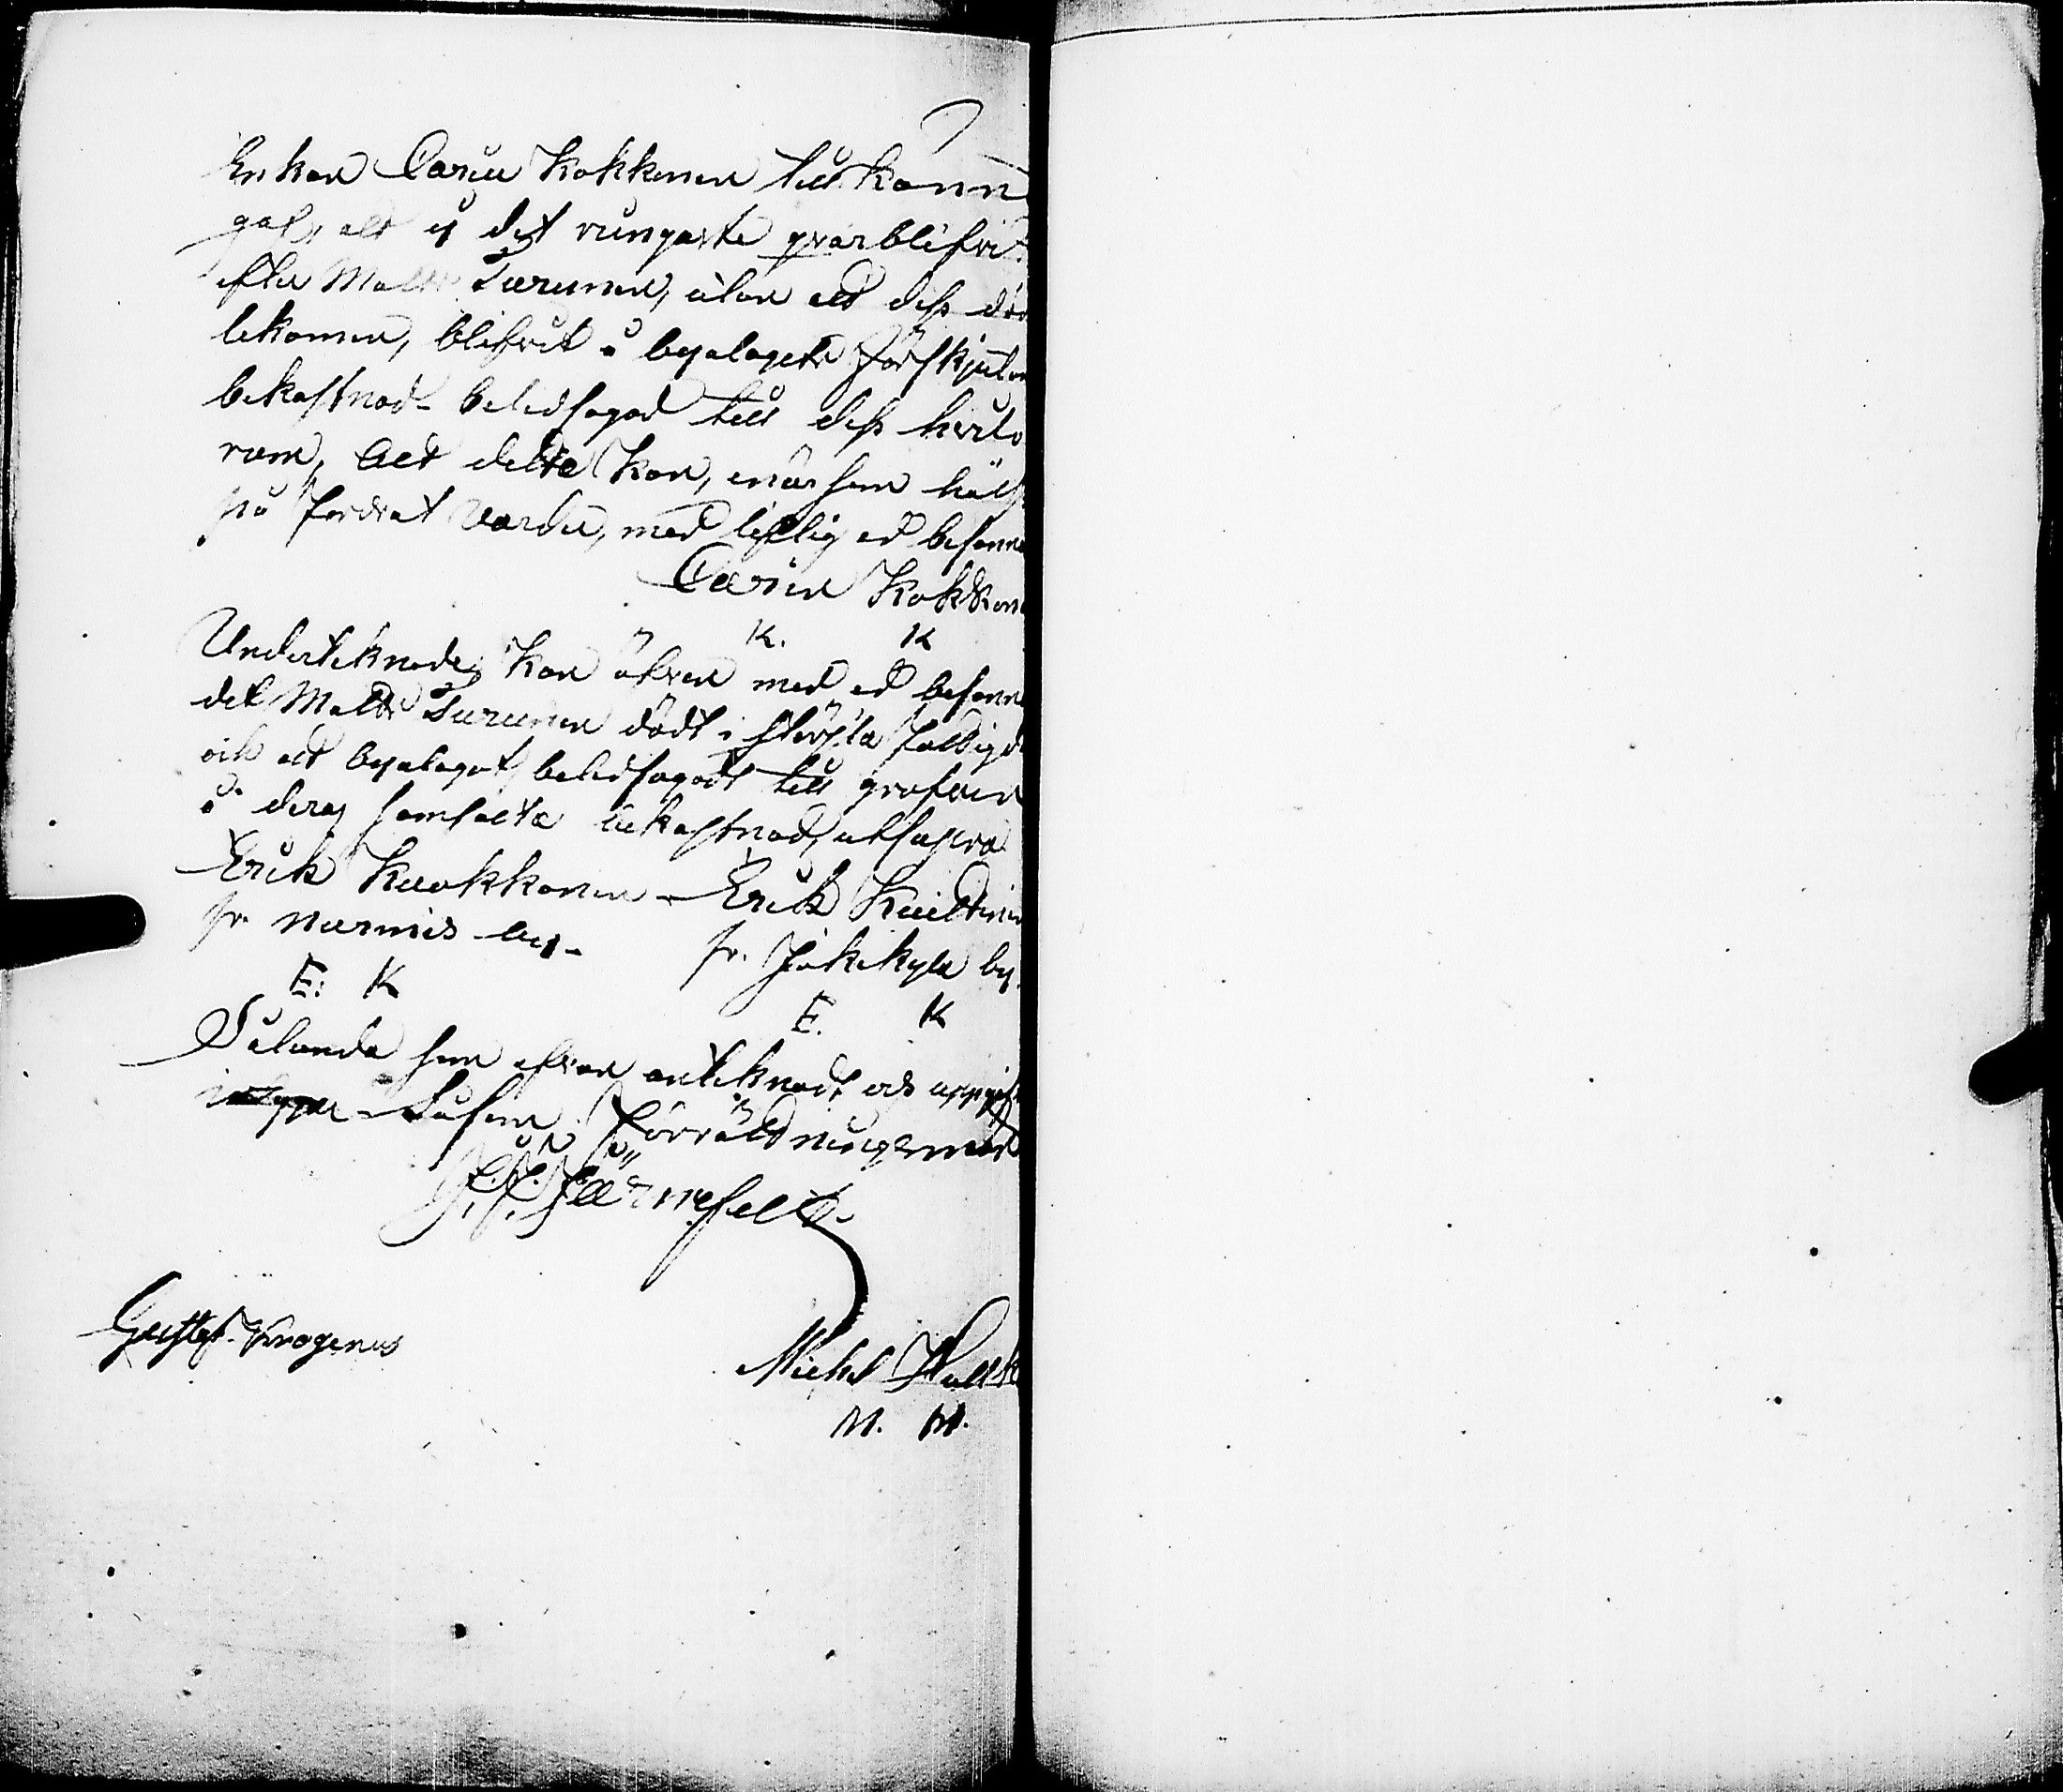 Enkan Carin Kokkonen till känn
gaf, att ej det ringaste qvarblifvit
efter Matts Turunen, utan att dess dö
lekamen, blifvit å byalagets förskjutna
bekostnad beledsagad till dess hvilo
rum, Att detta kan, enär som hälst
på fordrat varder, med liflig ed besanna
Carin Kokkon
K. K
Undertecknade kan äfven med ed besanna
det Matts Turunen dödt i största fattigd
och att byalaget beledsagat till grafven
å deras samfälta bekostnad, utsäpra
Erik Kaakkonen - Erik Kuittin
fr. Nurmis by - fr. Jokikylä by.
E: K E. K
Sålunda som ofvan antecknadt och uppgifv
Såsom Förrättningsmän
J. F. Järnefelt.
Gustaf Krogerus
Michel
M. M.